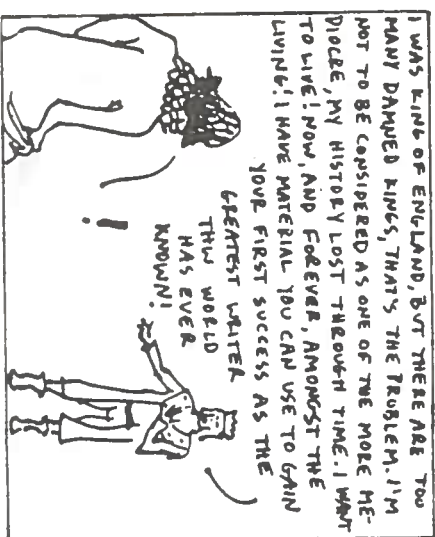 I WAS KING OF ENGLAND, BUT THERE ARE TOO
MANY DAMNED KINGS, THAT'S THE PROBLEM. I'M
NOT TO BE CONSIDERED AS ONE OF THE MORE ME-
DIOCRE, MY HISTORY LOST THROUGH TIME. I WANT
TO LIVE! NOW, AND FOREVER, AMONGST THE
LIVING! I HAVE MATERIAL YOU CAN USE TO GAIN
YOUR FIRST SUCCESS AS THE
GREATEST WRITER
THW WORLD
HAS EVER
KNOWN!
!